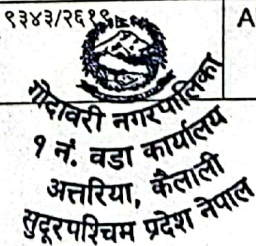 ९३४३/२६१९
A
गोदावरी नगरपालिका
१ नं. वडा कार्यालय
अत्तरिया, कैलाली
सुदूरपश्चिम प्रदेश नेपाल